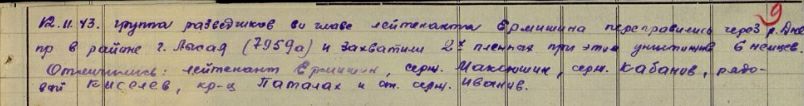 9
12.11.43. группа разведчиков во главе лейтенанта Ермишина переправились через р. Дне
пр в районе г. Лысая (7959а) и захватили 2х пленных при этом уничтожив 6 немцев.
Отличились: лейтенант Ермишин, серж. Максюшин, серж. Кабанов, рядо-
вой Киселев, кр-ц Паталах и ст. серж. Иванив.